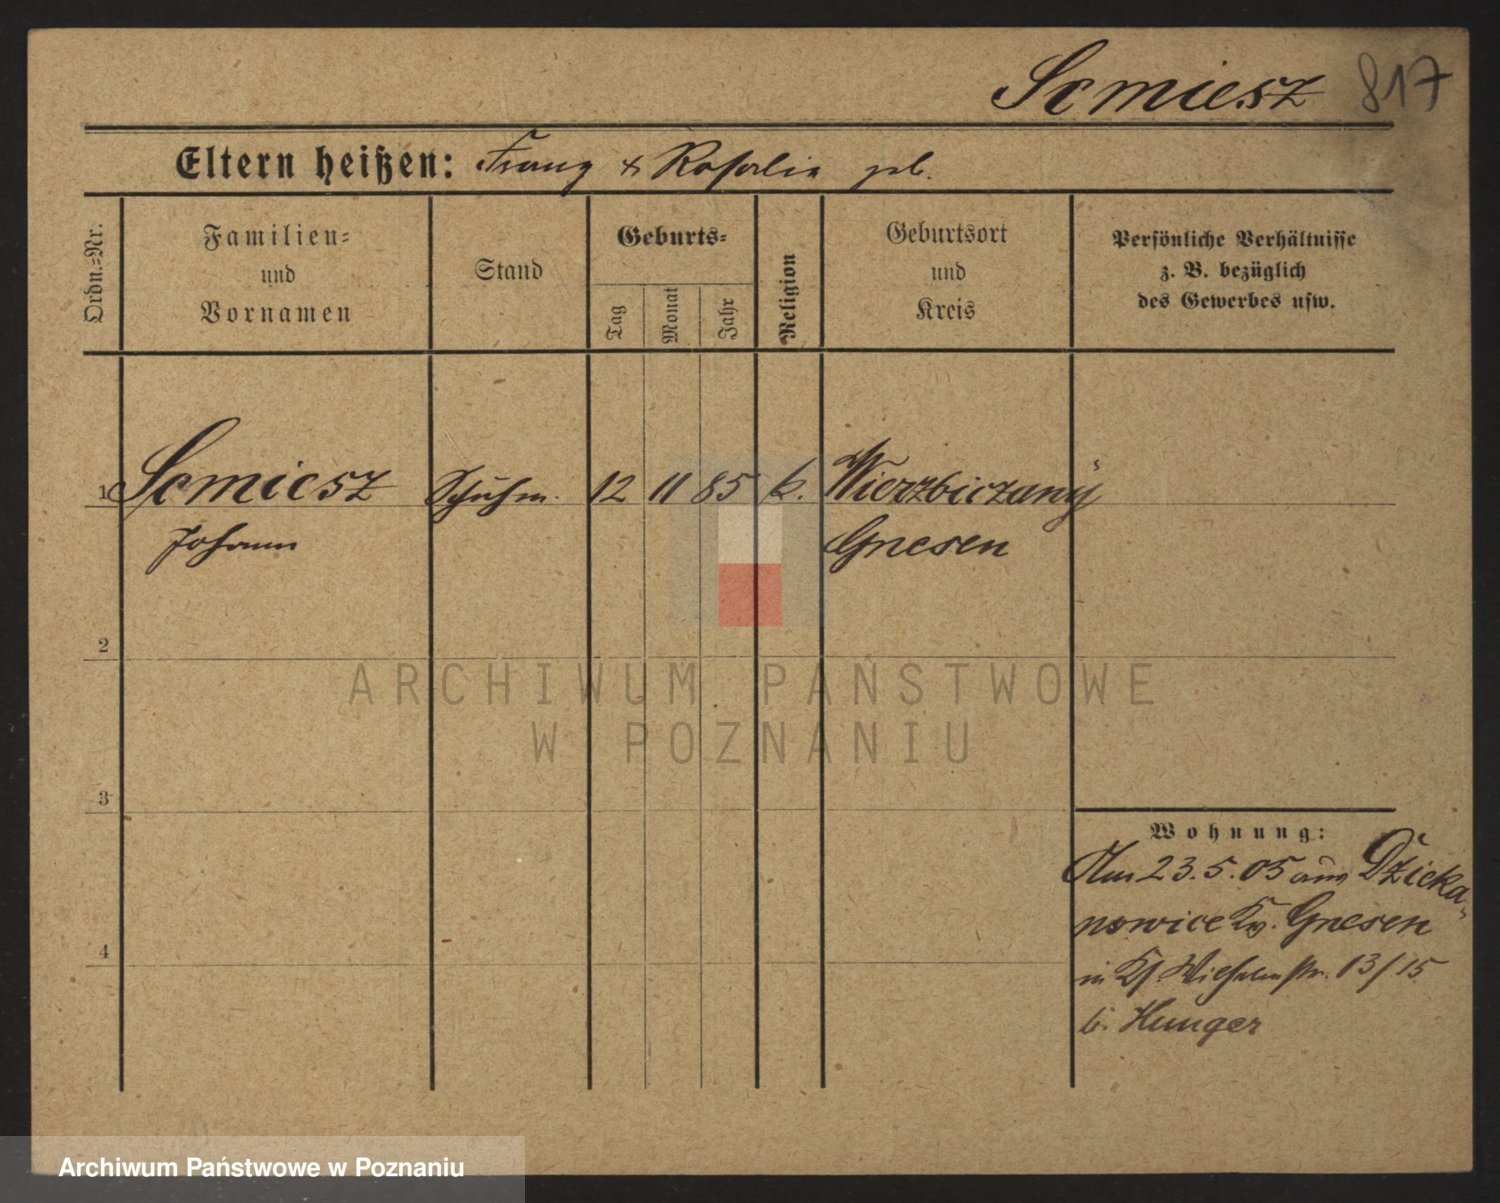 Semiesz 817
Eltern heißen: Franz & Rosalia geb.
Ordn.-Nr.
Familien-
und
Vornamen
Stand
Geburts-
Tag
Monat
Jahr
Religion
Geburtsort
und
Kreis
Persönliche Verhältnisse
z. B. bezüglich
des Gewerbes usw.
1 Semiesz Schuhm. 12 11 85 k. Wierzbiczany
Johann Gnesen
2
ARCHIWUM PAŃSTWOWE
W POZNANIU
3
Wohnung:
Am 23.5.05 aus Dzieka-
nowice Kr. Gnesen
in Wilhelmstr. 13/15
b. Hunger
4
Archiwum Państwowe w Poznaniu